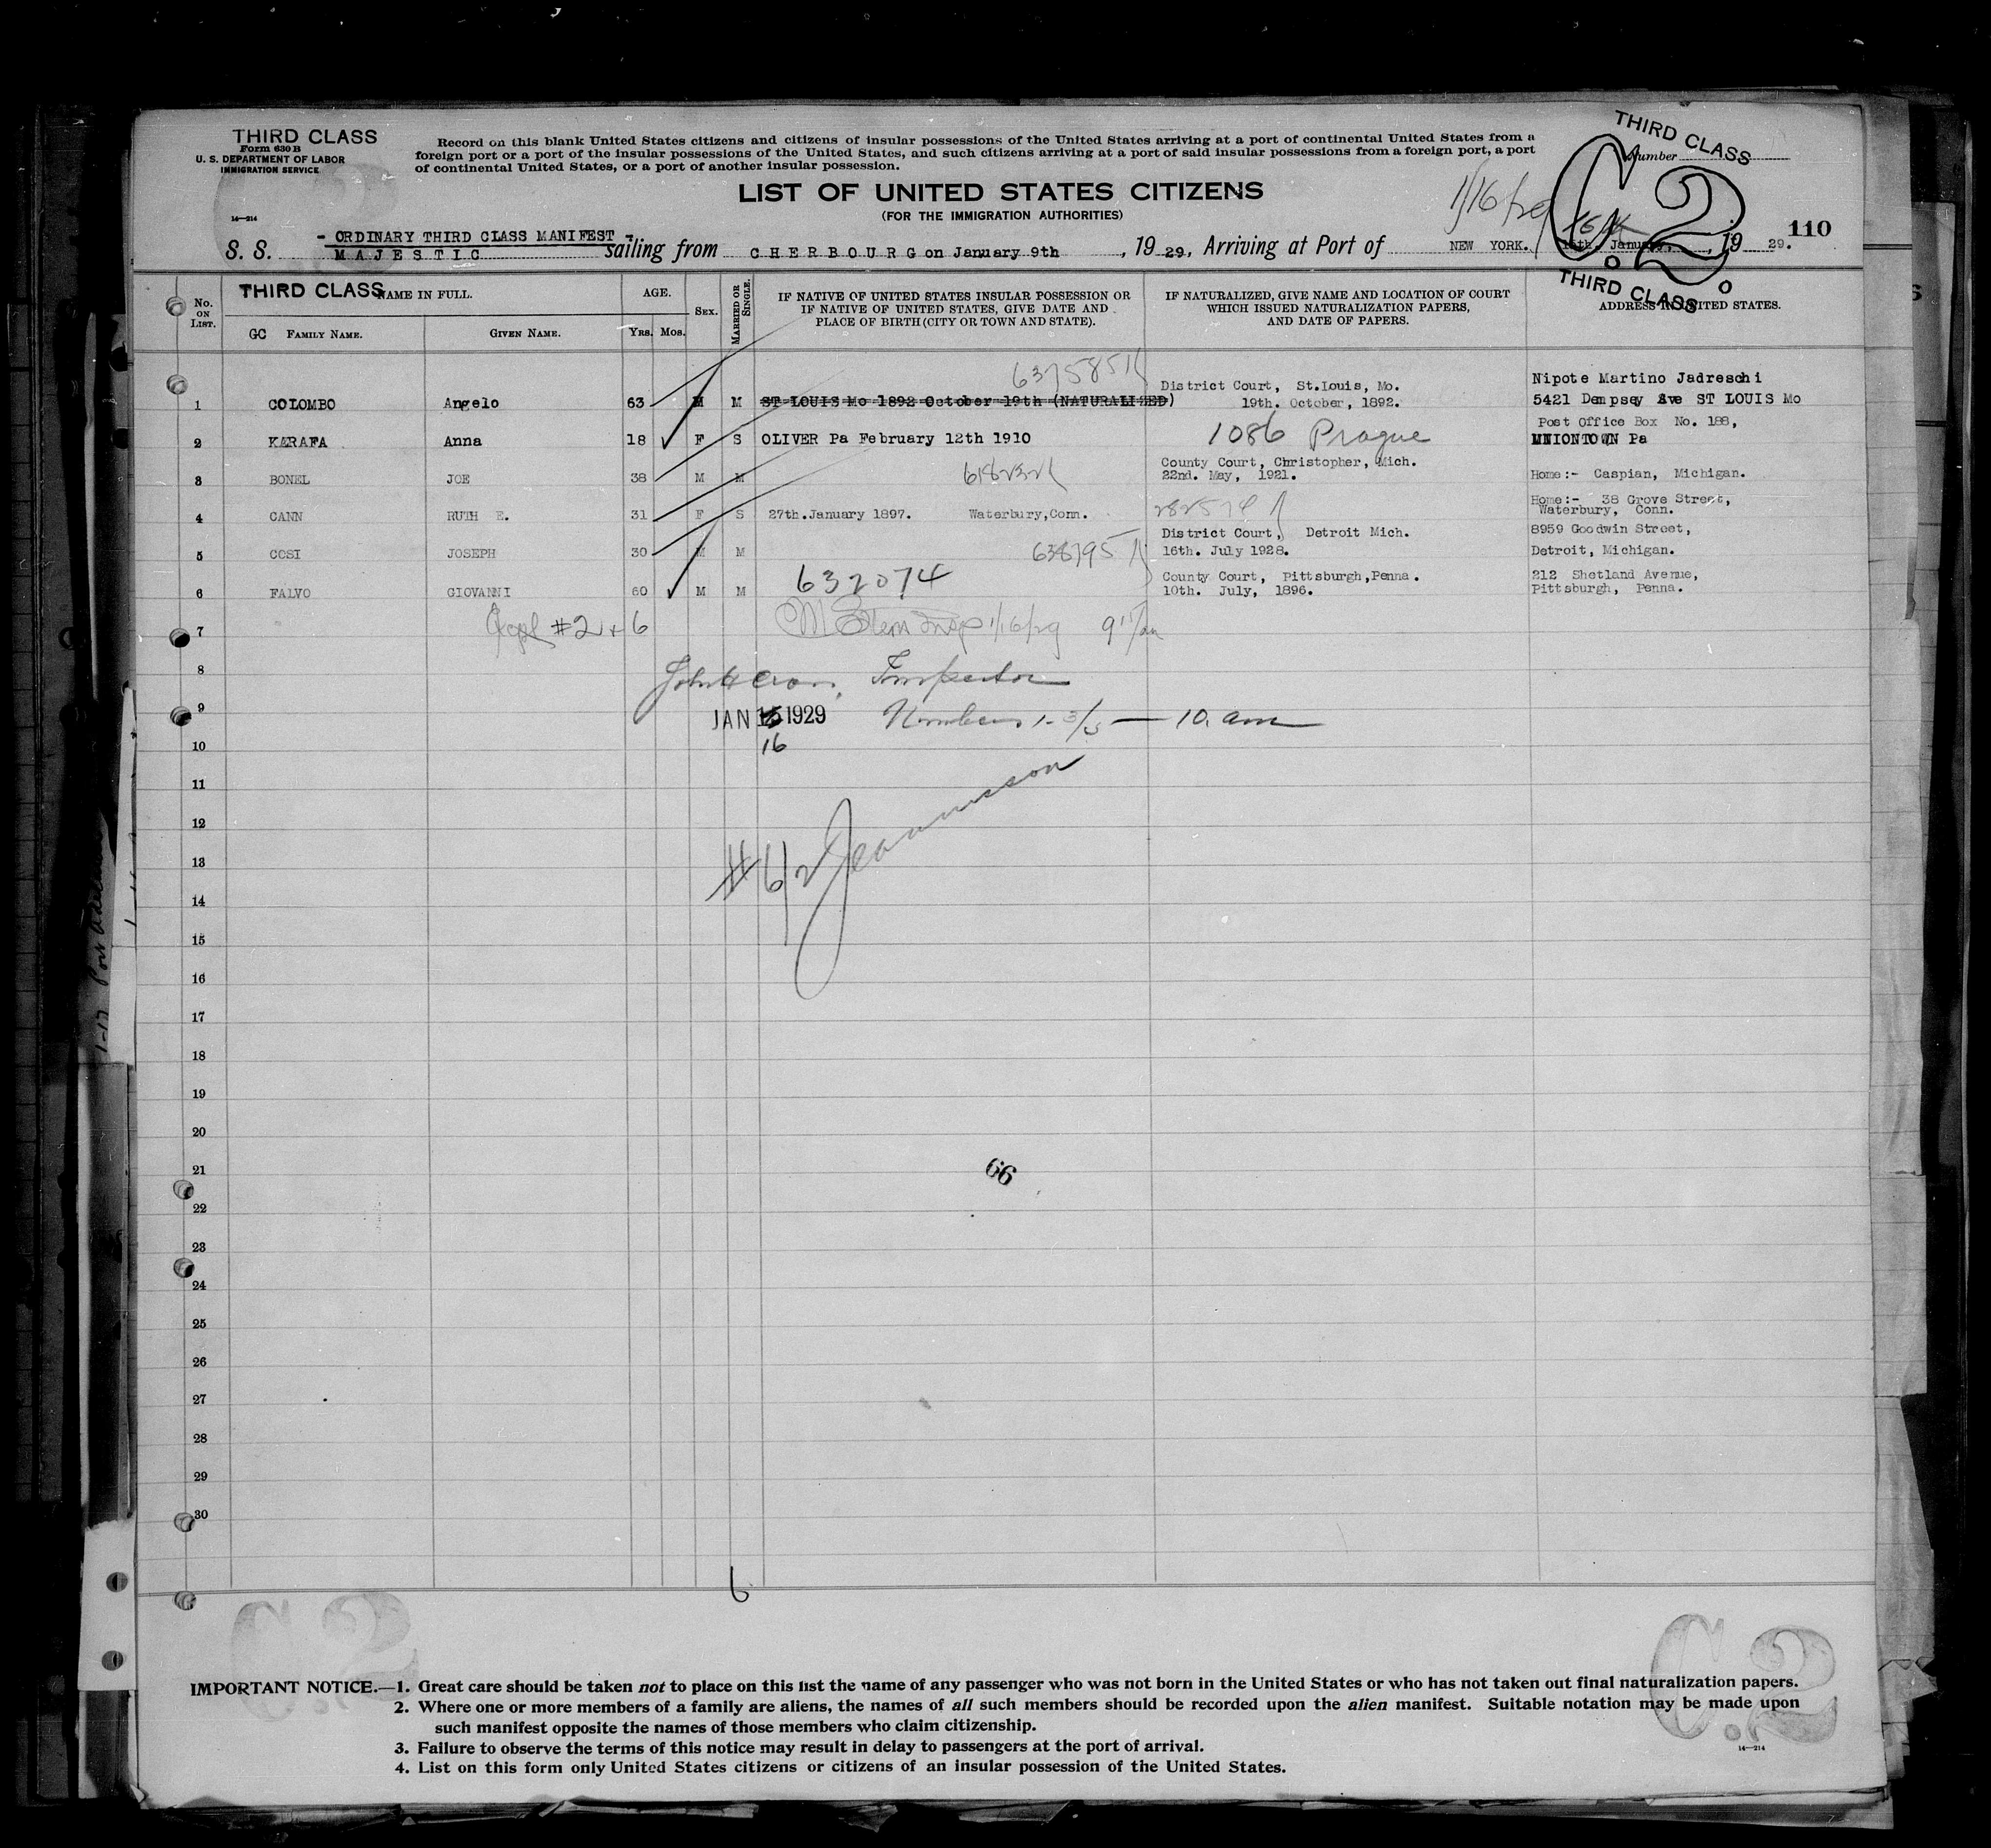 THIRD CLASS
Form 630 B
U. S. DEPARTMENT OF LABOR
IMMIGRATION SERVICE
14—214
Record on this blank United States citizens and citizens of insular possessions of the United States arriving at a port of continental United States from a
foreign port or a port of the insular possessions of the United States, and such citizens arriving at a port of said insular possessions from a foreign port, a port
of continental United States, or a port of another insular possession.
THIRD CLASS
Number
C.2.
THIRD CLASS
LIST OF UNITED STATES CITIZENS
(FOR THE IMMIGRATION AUTHORITIES)
110
- ORDINARY THIRD CLASS MANIFEST -
S. S. MAJESTIC sailing from CHERBOURG on January 9th, 1929, Arriving at Port of NEW YORK. 15th. January, 1929.
No. ON LIST.
THIRD CLASS NAME IN FULL.
GC FAMILY NAME. GIVEN NAME.
AGE.
Yrs. Mos.
SEX.
MARRIED OR SINGLE.
IF NATIVE OF UNITED STATES INSULAR POSSESSION OR
IF NATIVE OF UNITED STATES, GIVE DATE AND
PLACE OF BIRTH (CITY OR TOWN AND STATE).
IF NATURALIZED, GIVE NAME AND LOCATION OF COURT
WHICH ISSUED NATURALIZATION PAPERS,
AND DATE OF PAPERS.
ADDRESS IN UNITED STATES.
637585
District Court, St.Louis, Mo. Nipote Martino Jadreschi
1 COLOMBO Angelo 63 M M ST LOUIS Mo 1892 October 19th (NATURALIZED) 19th. October, 1892. 5421 Dempsey Ave ST LOUIS Mo
Post Office Box No. 188,
2 KARAFA Anna 18 F S OLIVER Pa February 12th 1910 1086 Prague UNIONTOWN Pa
County Court, Christopher, Mich.
3 BONEL JOE 38 M M 22nd. May, 1921. Home:- Caspian, Michigan.
Home:- 38 Grove Street,
4 CANN RUTH E. 31 F S 27th.January 1897. Waterbury,Conn. Waterbury, Conn.
District Court, Detroit Mich. 8959 Goodwin Street,
5 COSI JOSEPH 30 M M 638795 16th. July 1928. Detroit, Michigan.
632074 County Court, Pittsburgh,Penna. 212 Shetland Avenue,
6 FALVO GIOVANNI 60 M M 10th. July, 1896. Pittsburgh, Penna.
7 #2+6 1/16/29
8
Inspector
9 JAN 15 1929 Numbers 1-3/5 — 10. am
10 16
11
12
13 #6/2 Jeannisson
14
15
16
17
18
19
20
21 66
22
23
24
25
26
27
28
29
30
6
C.2
C.2
IMPORTANT NOTICE.—1. Great care should be taken not to place on this list the name of any passenger who was not born in the United States or who has not taken out final naturalization papers.
2. Where one or more members of a family are aliens, the names of all such members should be recorded upon the alien manifest. Suitable notation may be made upon
such manifest opposite the names of those members who claim citizenship.
3. Failure to observe the terms of this notice may result in delay to passengers at the port of arrival.
4. List on this form only United States citizens or citizens of an insular possession of the United States.
14—214